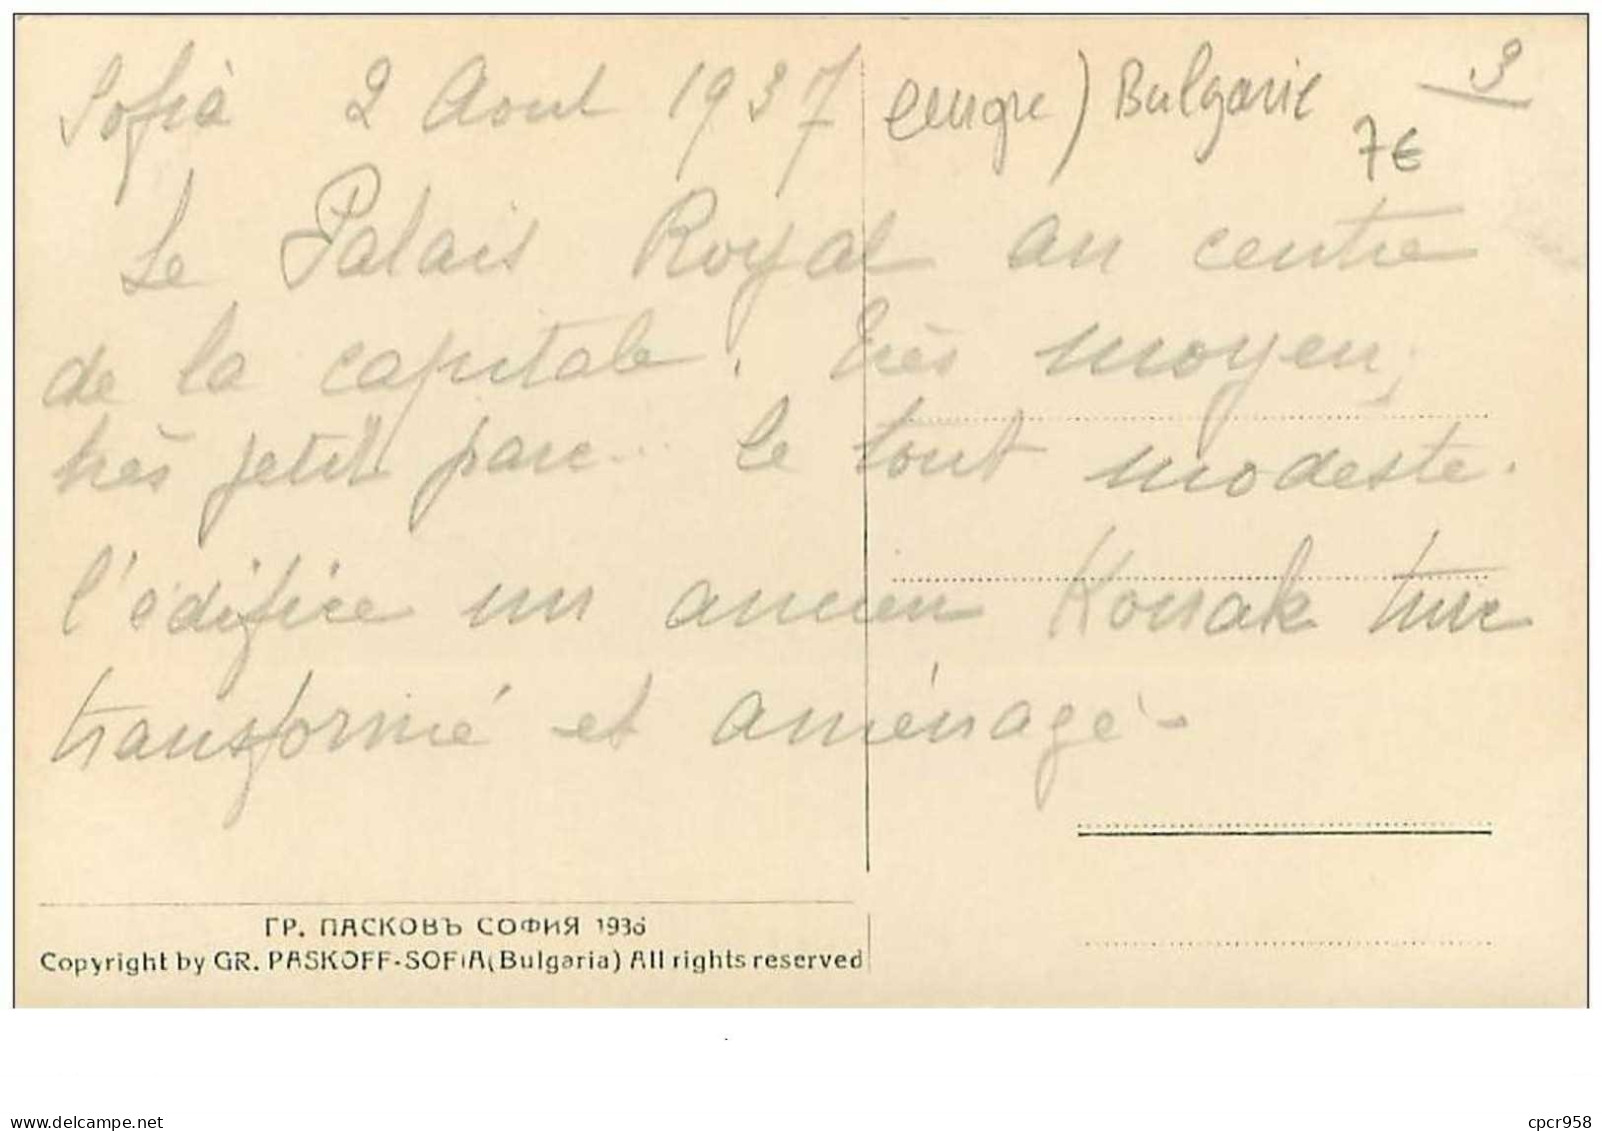 Sofia 2 Aout 1937
Bulgarie
3
7€
Le Palais Royal au centre
de la capitale. Très moyen,
très petit parc... le tout modeste.
l'édifice un ancien Konak turc
transformé et aménagé -
ГР. ПАСКОВЪ СОФИЯ 1936
Copyright by GR. PASKOFF-SOFIA (Bulgaria) All rights reserved
delcampe.net
cpcr958